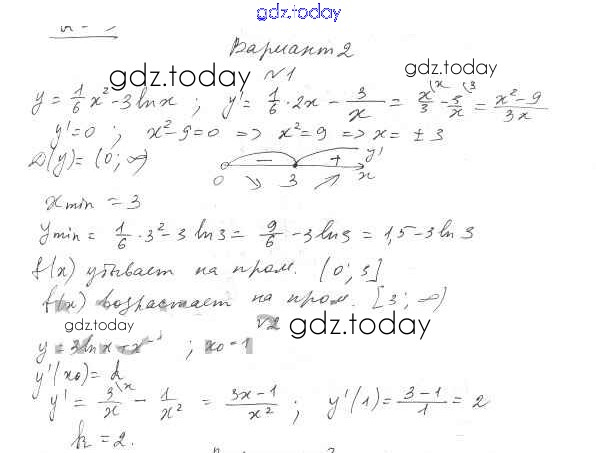 gdz.today
Вариант 2
gdz.today gdz.today
№1
y = 1/6 x² - 3 ln x ; y' = 1/6 · 2x - 3/x = x/3 - 3/x = x² - 9/3x
y' = 0 ; x² - 9 = 0 => x² = 9 => x = ± 3
D(y) = (0; ∞) - + y'
0 3 x
x min = 3
y min = 1/6 · 3² - 3 ln 3 = 9/6 - 3 ln 3 = 1,5 - 3 ln 3
f(x) убывает на пром. (0; 3]
f(x) возрастает на пром. [3; ∞)
gdz.today №2 gdz.today
y = 3 ln x + x⁻¹ ; x₀ = 1
y'(x₀) = k
y' = 3/x - 1/x² = 3x - 1/x² ; y'(1) = 3 - 1/1 = 2
k = 2.